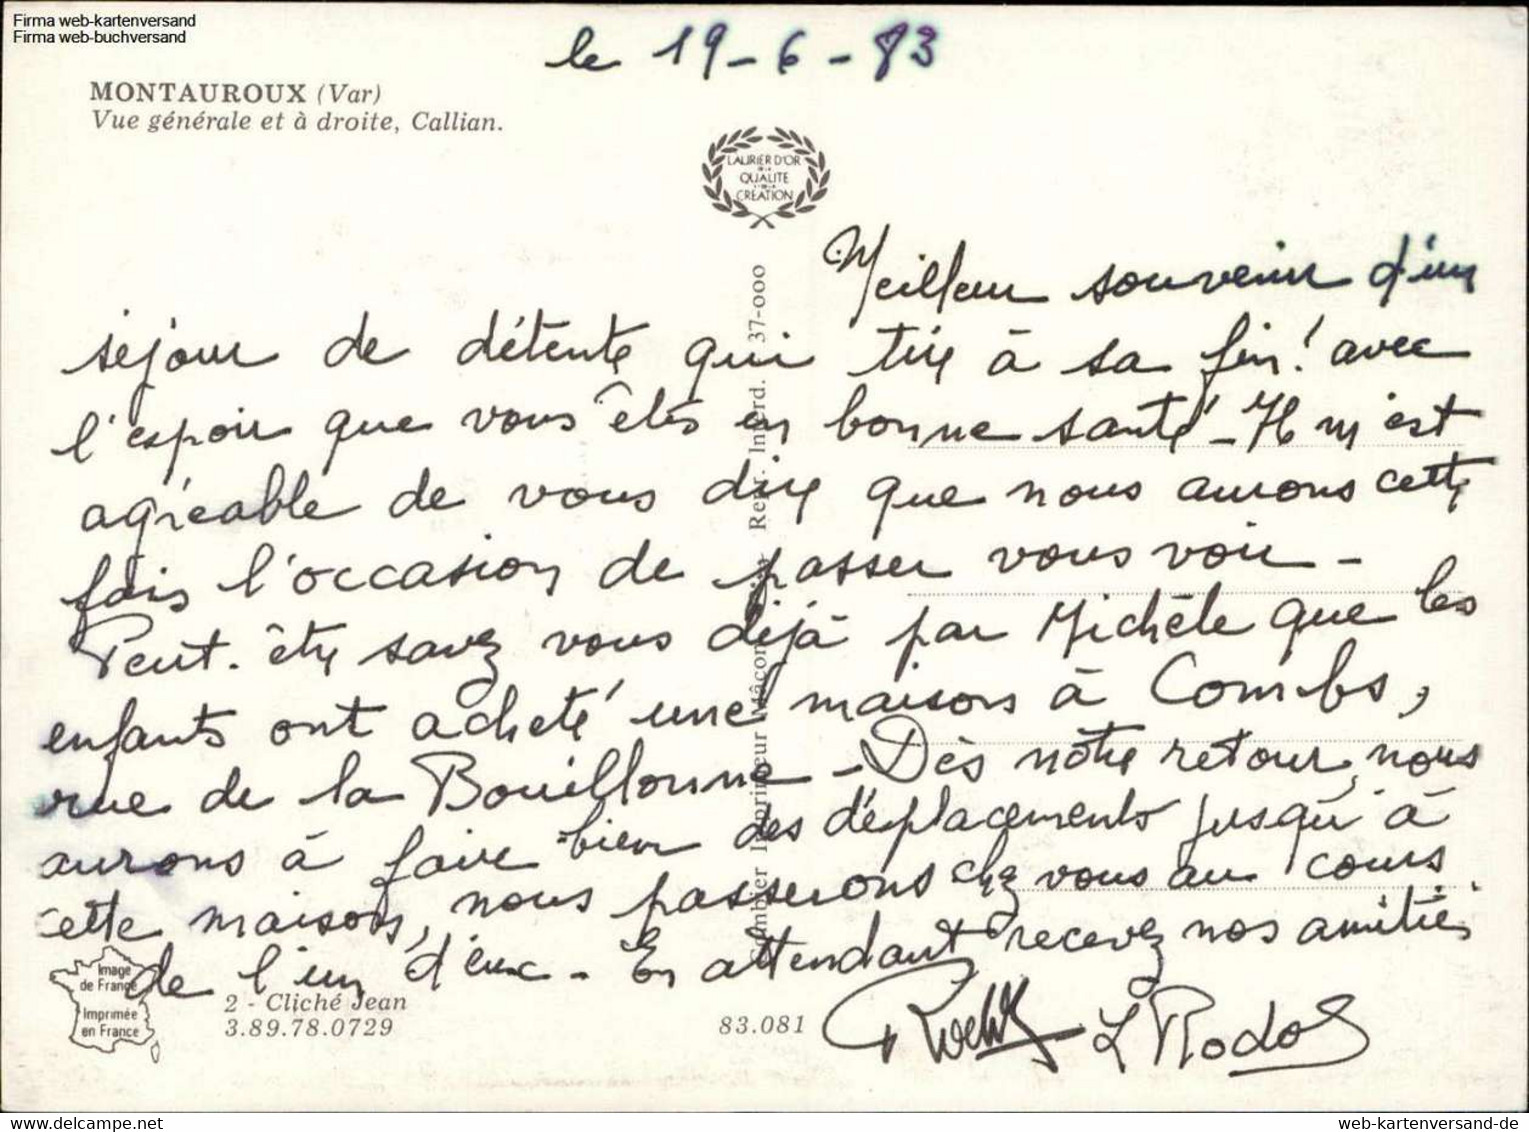 Firma web-kartenversand
Firma web-buchversand
le 19-6-83
MONTAUROUX (Var)
Vue générale et à droite, Callian.
LAURIER D'OR
DE LA
QUALITE
CREATION
Meilleur souvenir d'un
séjour de détente qui tire à sa fin! avec
l'espoir que vous êtes en bonne santé - Il m'est
agréable de vous dire que nous aurons cette
fois l'occasion de passer vous voir -
Peut-être savez vous déjà par Michèle que les
enfants ont acheté une maison à Combs,
rue de la Bouillonne - Dès notre retour, nous
aurons à faire bien des déplacements jusqu'à
cette maison, nous passerons chez vous au cours
de l'un d'eux - En attendant recevez nos amitiés
L Rodo
Combier Imprimeur Mâcon Repr. Interd. 37-000
Image
de France
Imprimée
en France
2 - Cliché Jean
3.89.78.0729
83.081
web-kartenversand.com
web-kartenversand-de